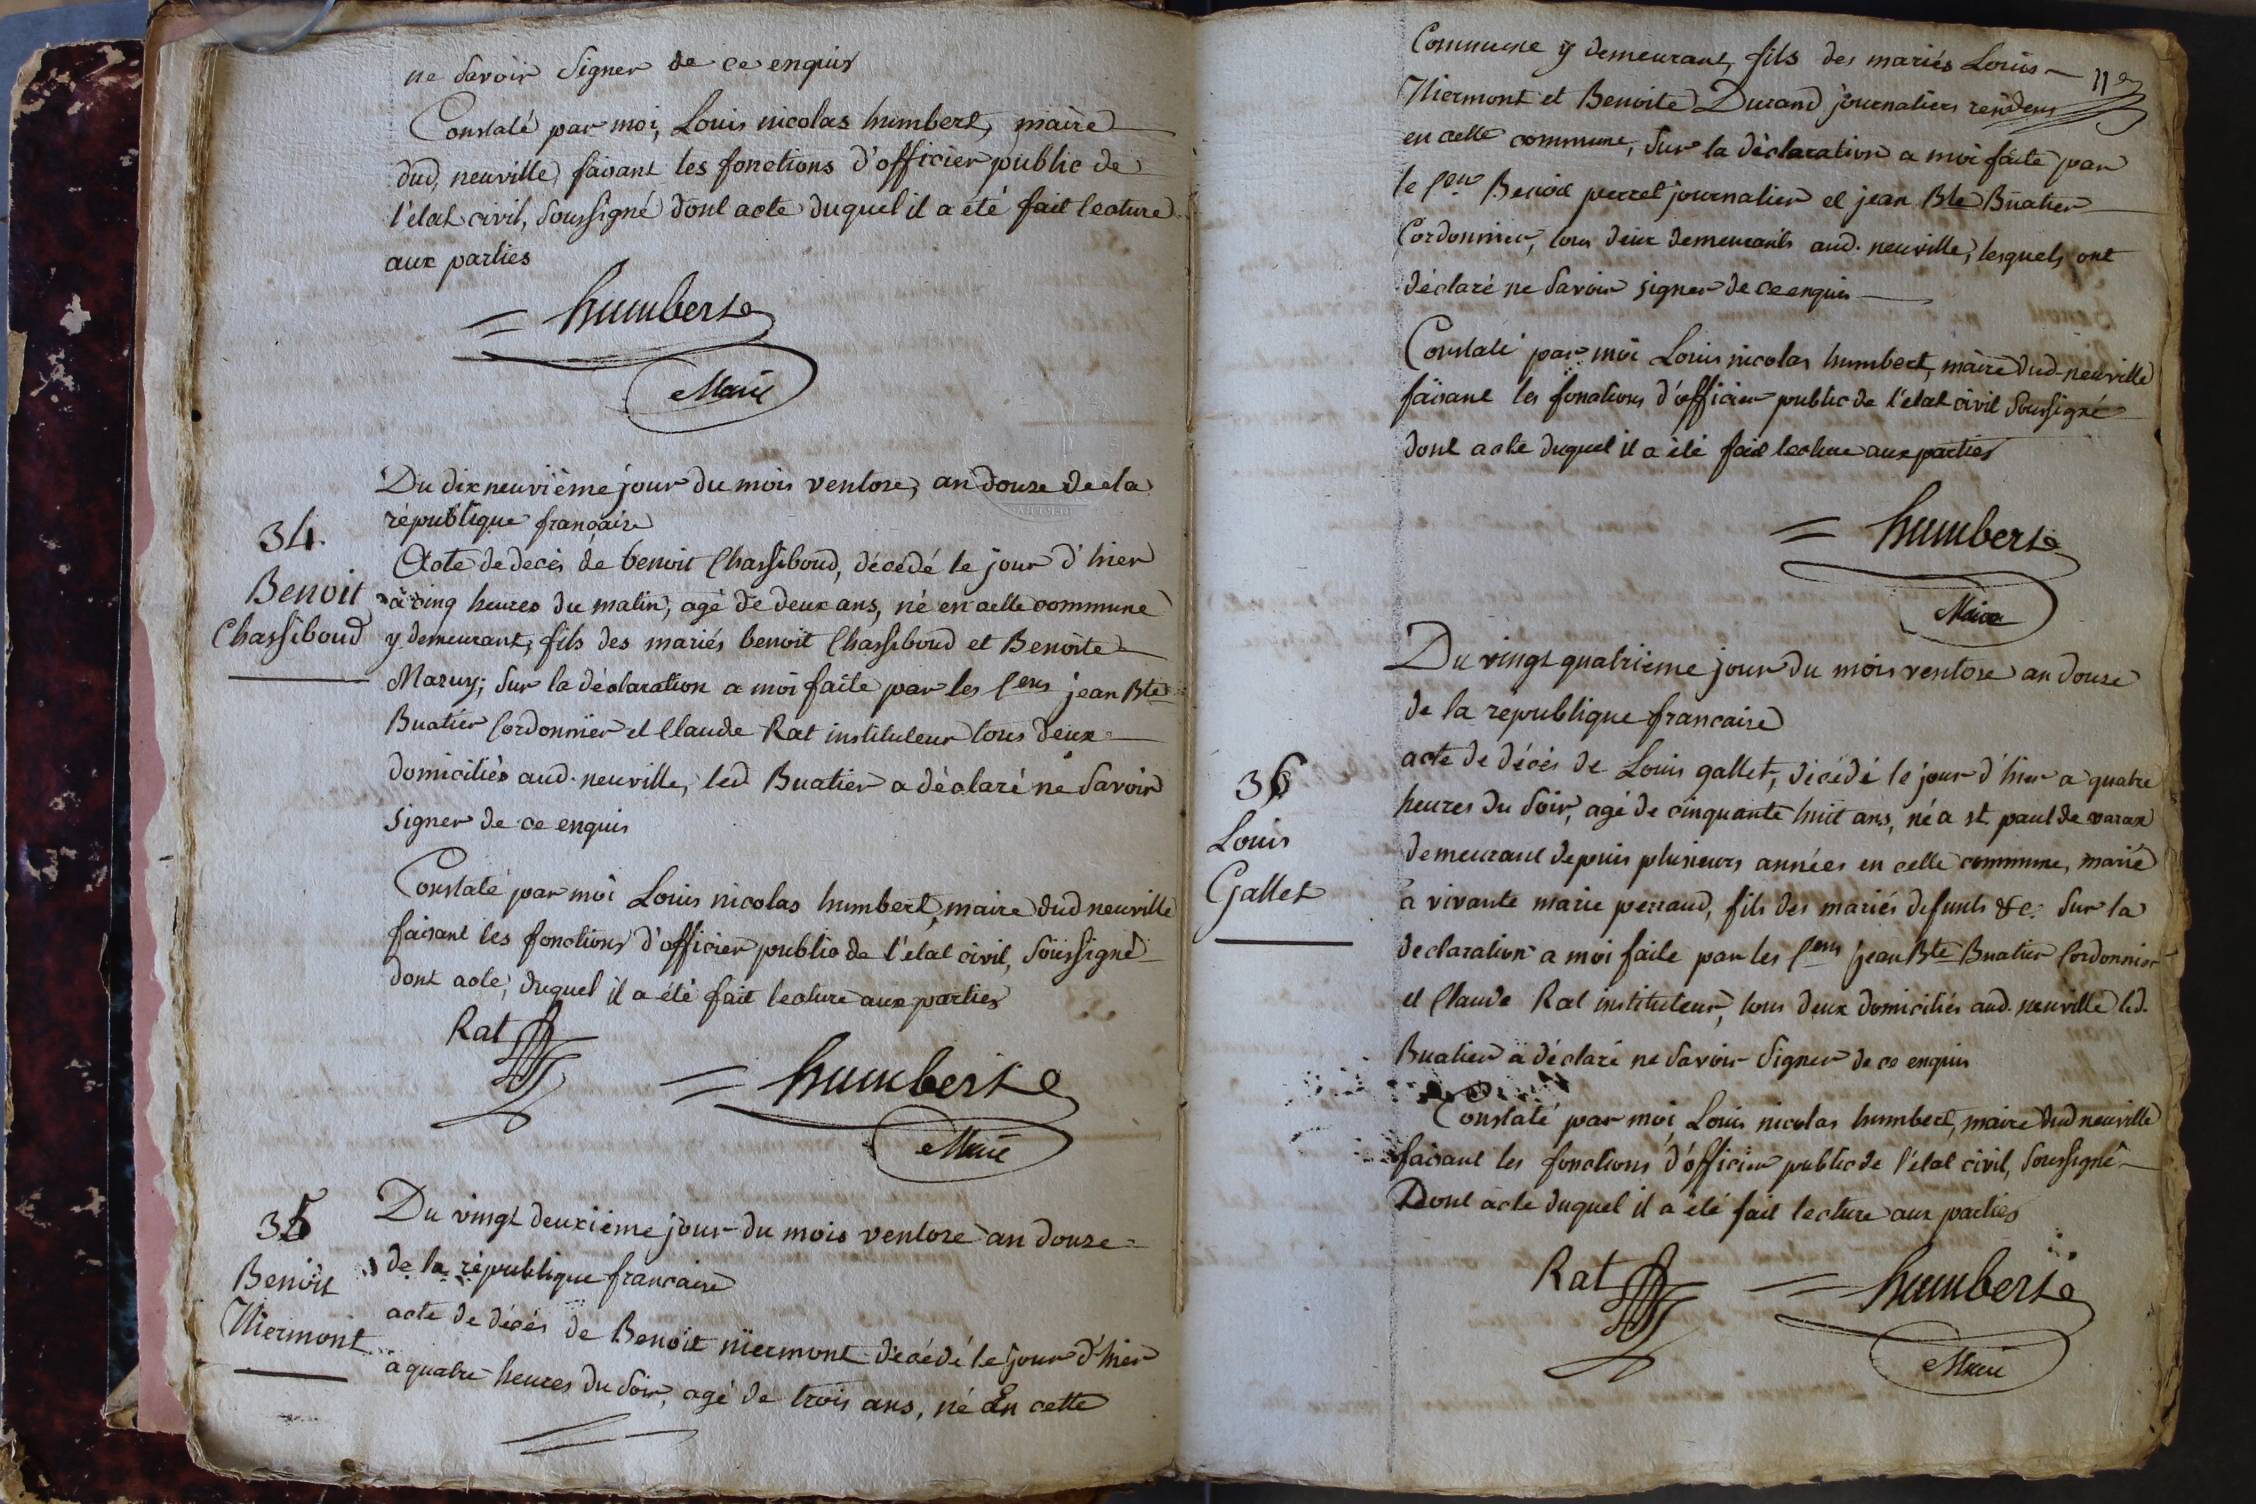 ne savoir signer de ce enquis
Constaté par moi, Louis nicolas humbert, maire
dud. neuville, faisant les fonctions d'officier public de
l'état civil, soussigné dont acte duquel il a été fait lecture
aux parties
humbert
Maire
Du dix neuvième jour du mois ventose, an douze de la
république française
34.
Benoit
Chassiboud
Acte de decès de benoit Chassiboud, décédé le jour d'hier
à cinq heures du matin, agé de deux ans, né en cette commune
y demeurant, fils des mariés benoit Chassiboud et Benoite
Mazuy; sur la déclaration a moi faite par les Cens jean Bte
Buatier Cordonnier et Claude Rat instituteur tous deux
domiciliés aud. neuville, led Buatier a déclaré ne savoir
signer de ce enquis
Constaté par moi Louis nicolas humbert, maire dud neuville
faisant les fonctions d'officier public de l'état civil, soussigné
dont acte, duquel il a été fait lecture aux parties
Rat
humbert
Maire
35
Benoit
Niermont
Du vingt deuxième jour du mois ventose an douze
de la république francaise
acte de décés de Benoit niermont décédé le jour d'hier
a quatre heures du soir, agé de trois ans, né En cette
Commune y demeurant, fils des mariés Louis
Niermont et Benoite Durand journaliers résidens
en cette commune, sur la déclaration a moi faite par
le Cen Benoit perret journalier et jean Bte Buatier
Cordonnier, tous deux demeurants aud. neuville, lesquels ont
déclaré ne savoir signer de ce enquis
Constaté par moi Louis nicolas humbert, maire dud neuville
faisant les fonctions d'officier public de l'état civil soussigné
dont acte duquel il a été fait lecture aux parties
humbert
Maire
Du vingt quatrième jour du mois ventose an douze
de la republique francaise
36
Louis
Gallet
acte de décés de Louis gallet, décédé le jour d'hier a quatre
heures du soir, agé de cinquante huit ans, né a st. paul de varax
demeurant depuis plusieurs années en cette commune, marié
a vivante marie perraud, fils des mariés defunts &c. sur la
declaration a moi faite par les Cens jean Bte Buatier Cordonnier
et Claude Rat instituteur, tous deux domiciliés aud. neuville led.
Buatier a déclaré ne savoir signer de ce enquis
Constaté par moi, Louis nicolas humbert, maire dud neuville
faisant les fonctions d'officier public de l'état civil, soussigné
Dont acte duquel il a été fait lecture aux parties
Rat
humbert
Maire